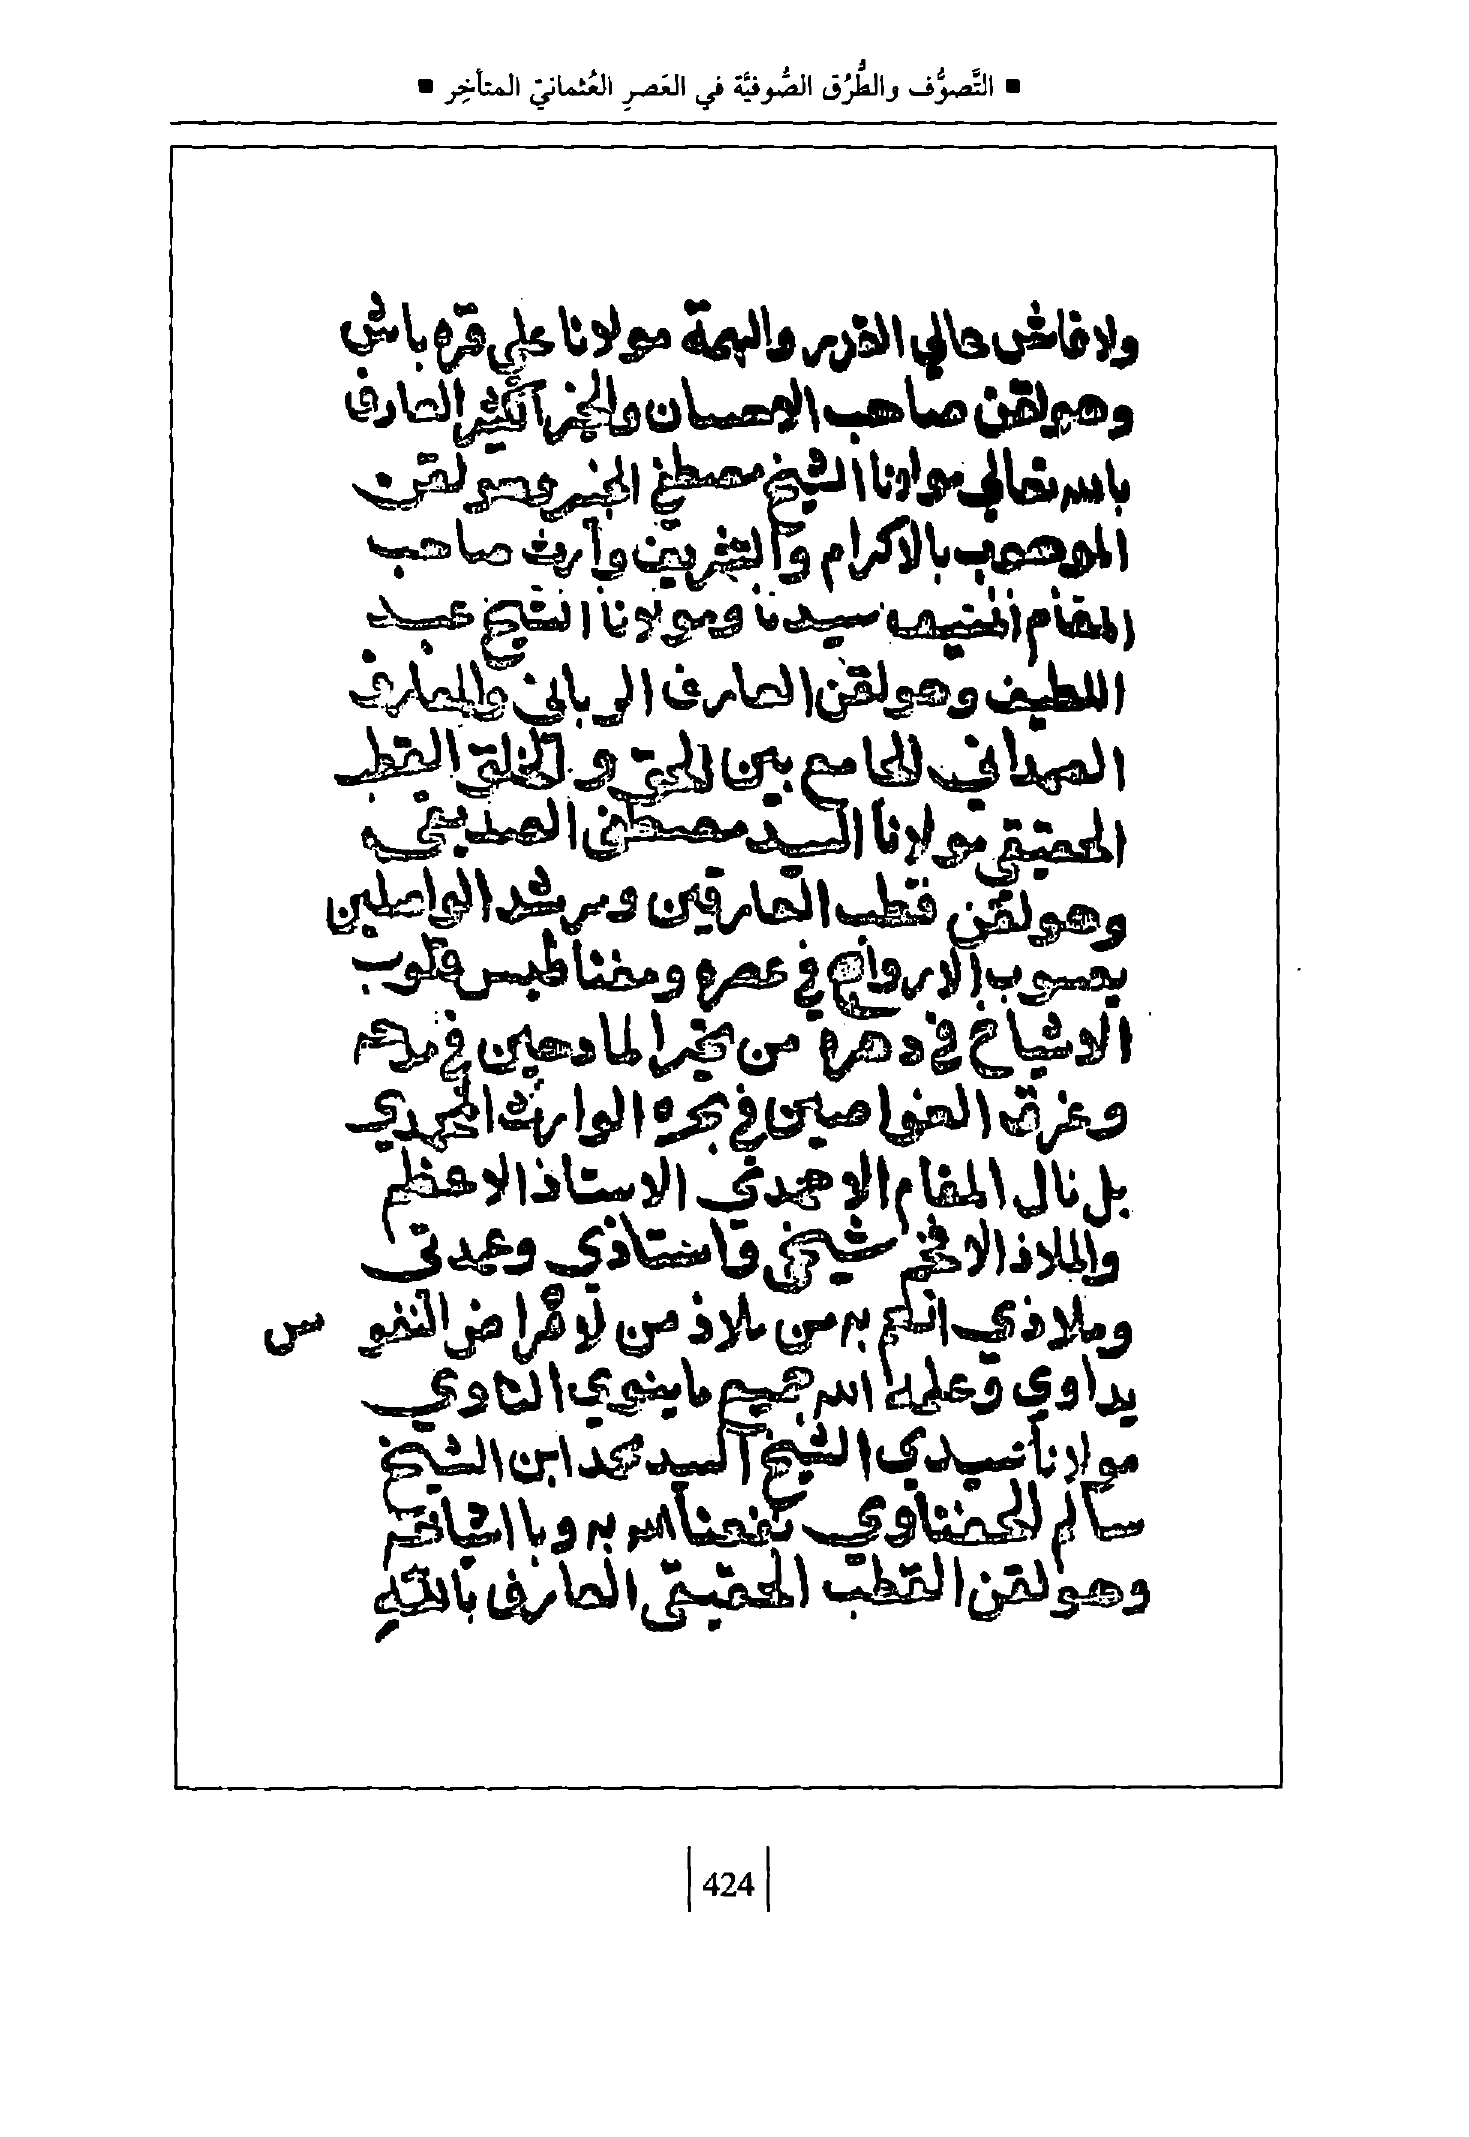 ▪ التَّصوُّف والطُّرُق الصُّوفيَّة في العَصرِ العُثمانيّ المتأخِر ▪
ولا فاش عالي القدر والهمة مولانا علي قره باش
وهو لقن صاحب الاحسان والخير الكثير العارف
بالله تعالي مولانا الشيخ مصطفي وهو لقن
الموهوب بالاكرام والتشريف وارث صاحب
المقام المنيف سيدنا ومولانا الشيخ عبد
اللطيف وهو لقن العارف الرباني والمعارف
الصمداني الجامع بين الحق والخلق القطب
الحقيقي مولانا السيد مصطفي الصديقي
وهو لقن قطب العارفين ومرشد الواصلين
يعسوب الارواح في عصره ومغناطيس قلوب
الاشياخ في دهره من تحير المادحين في مدحه
وغرق الغواصين في بحره الوارث المحمدي
بل نال المقام الاحمدي الاستاذ الاعظم
والملاذ الافخم شيخي واستاذي وعمدتي
وملاذي انعم به من ملاذ من لامراض النفو س
يداوي وعلمه الله جميع ما ينوي الناوي
مولانا سيدي الشيخ السيد محمد ابن الشيخ
سالم الحفناوي نفعنا الله به وبا اشياخه
وهو لقن القطب الحقيقي العارف بالله
424